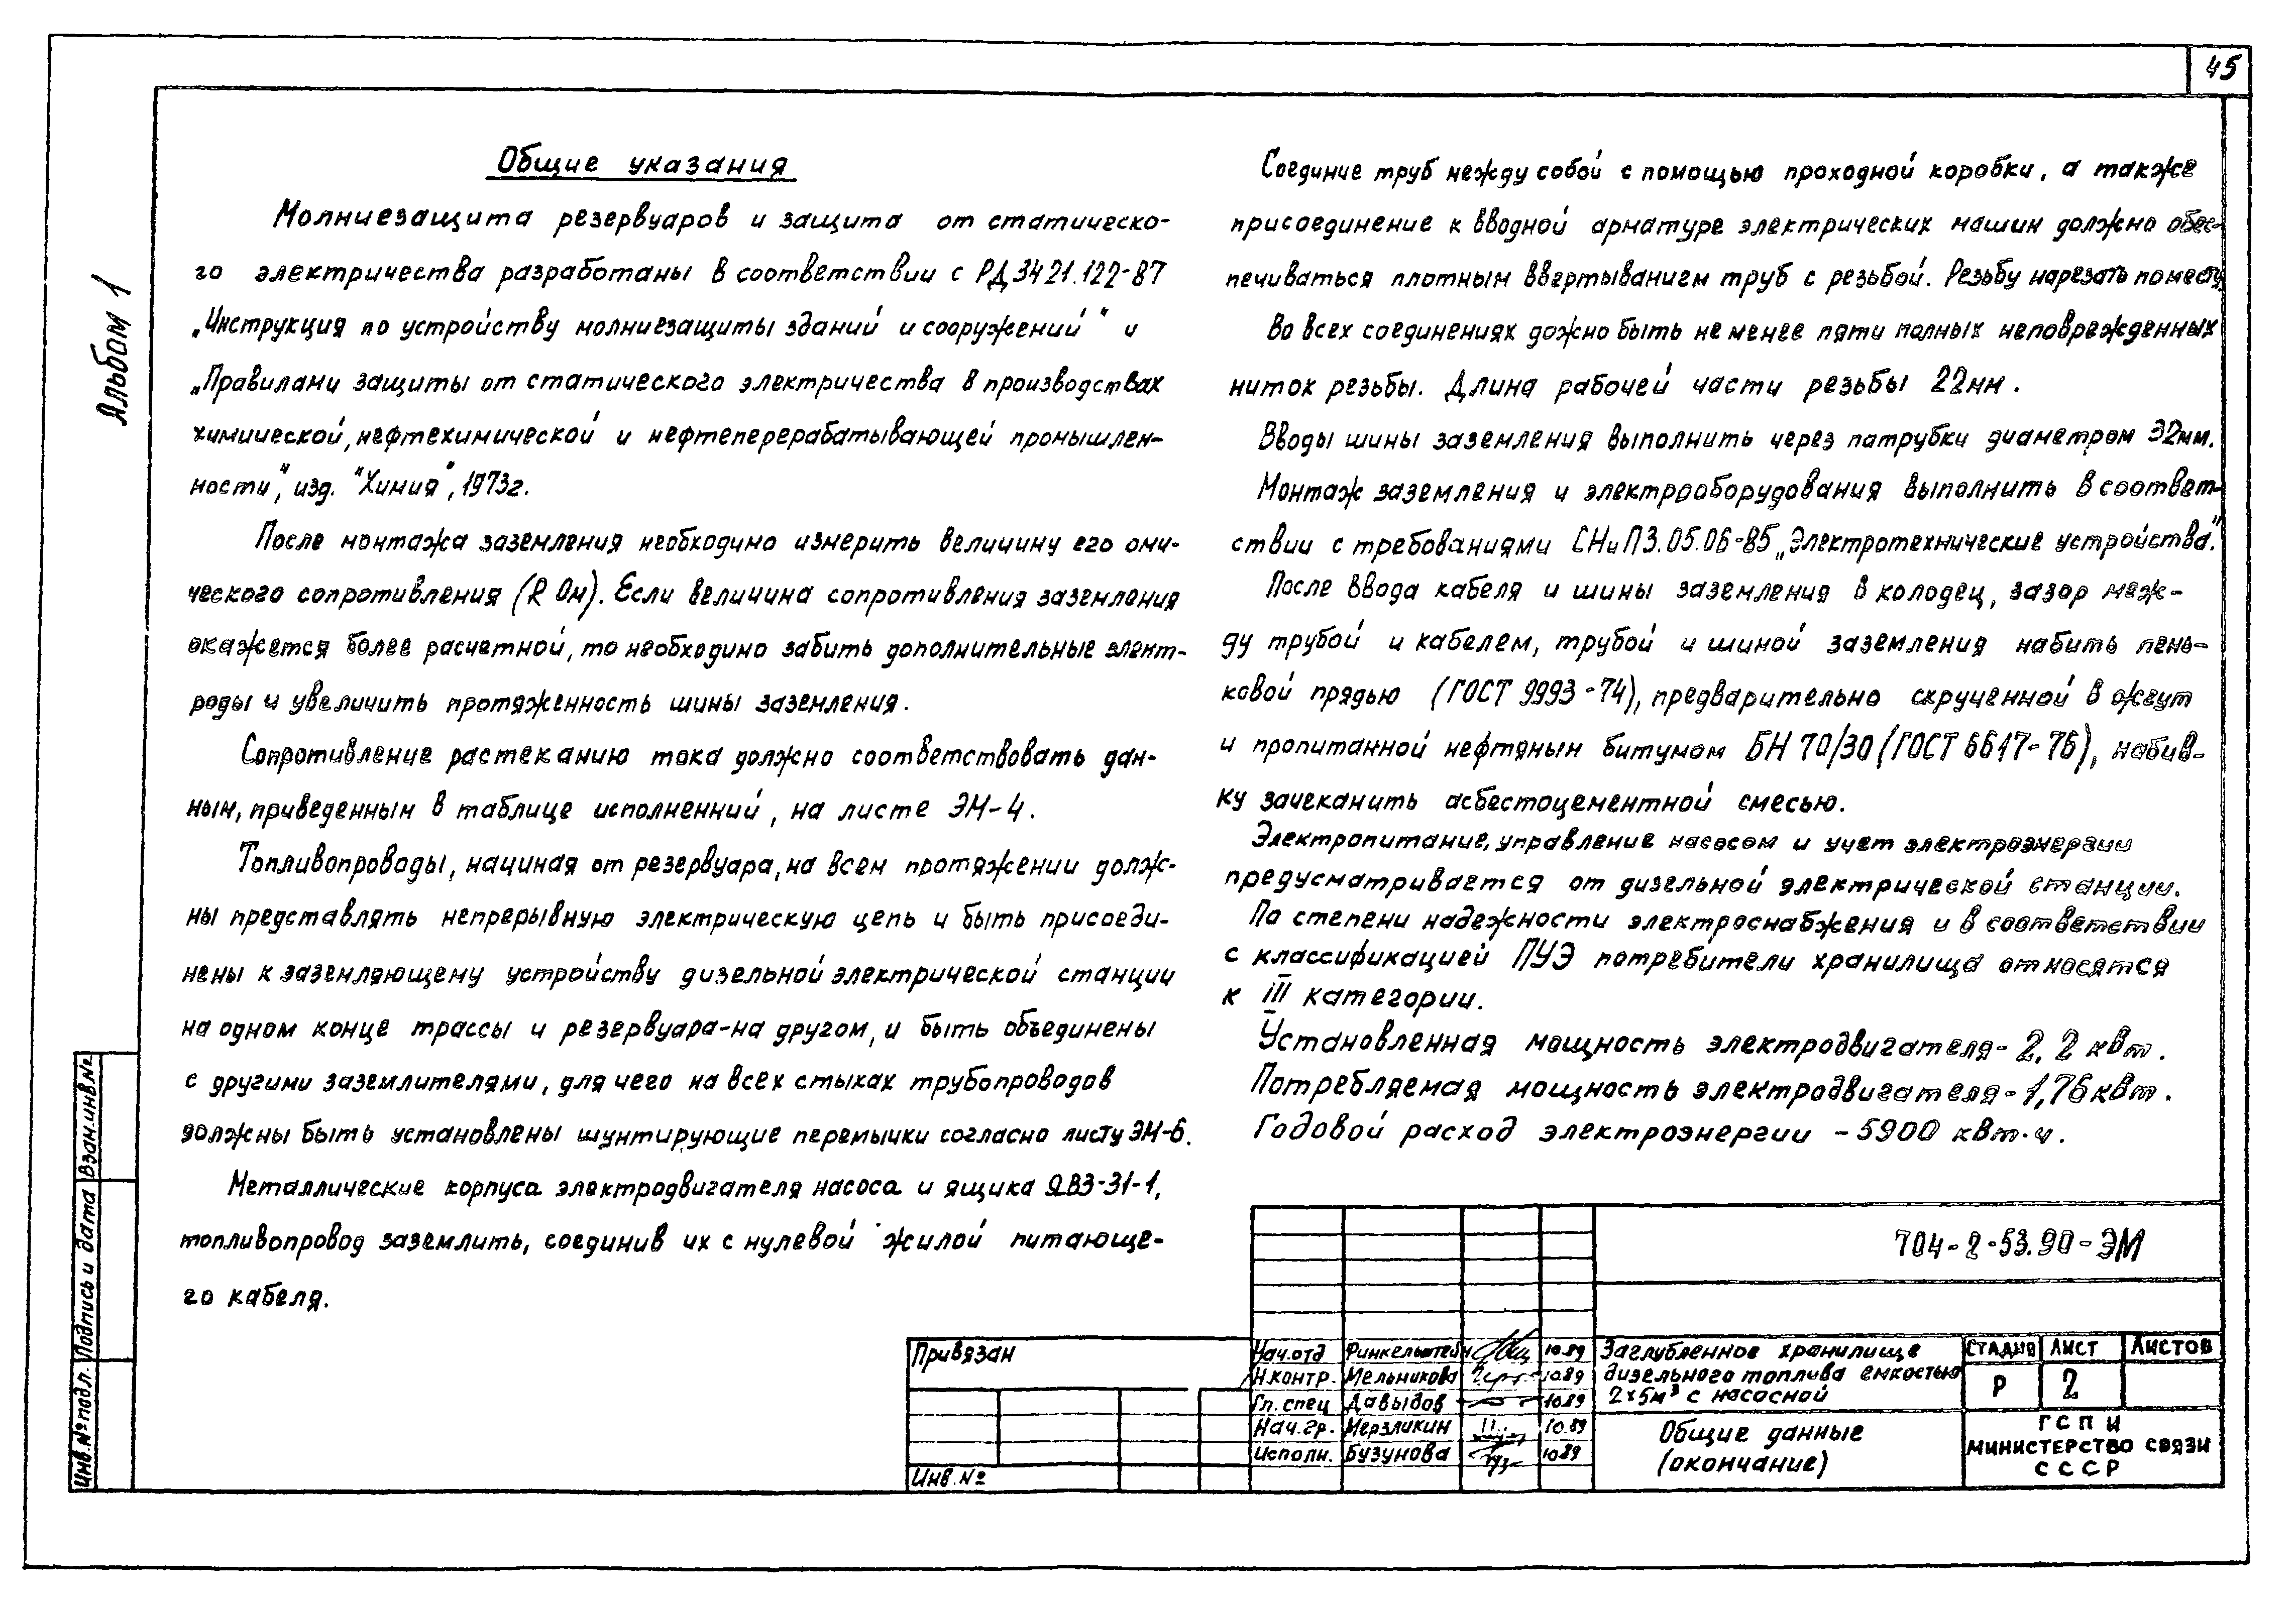 45
Альбом 1
Общие указания
Молниезащита резервуаров и защита от статическо-
го электричества разработаны в соответствии с РД 34 21.122-87
„Инструкция по устройству молниезащиты зданий и сооружений" и
„Правилами защиты от статического электричества в производствах
химической, нефтехимической и нефтеперерабатывающей промышлен-
ности", изд. "Химия", 1973г.
После монтажа заземления необходимо измерить величину его оми-
ческого сопротивления (R Ом). Если величина сопротивления заземления
окажется более расчетной, то необходимо забить дополнительные элект-
роды и увеличить протяженность шины заземления.
Сопротивление растеканию тока должно соответствовать дан-
ным, приведенным в таблице исполненний, на листе ЭМ-4.
Топливопроводы, начиная от резервуара, на всем протяжении долж-
ны представлять непрерывную электрическую цепь и быть присоеди-
нены к заземляющему устройству дизельной электрической станции
на одном конце трассы и резервуара-на другом, и быть объединены
с другими заземлителями, для чего на всех стыках трубопроводов
должны быть установлены шунтирующие перемычки согласно листу ЭМ-6.
Металлические корпуса электродвигателя насоса и ящика ЯВЗ-31-1,
топливопровод заземлить, соединив их с нулевой жилой питающе-
го кабеля.
Соединие труб между собой с помощью проходной коробки, а также
присоединение к вводной арматуре электрических машин должно обес-
печиваться плотным ввертыванием труб с резьбой. Резьбу нарезать по месту.
Во всех соединениях дожно быть не менее пяти полных неповрежденных
ниток резьбы. Длина рабочей части резьбы 22мм.
Вводы шины заземления выполнить через патрубки диаметром 32мм.
Монтаж заземления и электрооборудования выполнить в соответ-
ствии с требованиями СНиП 3.05.06-85 „Электротехнические устройства".
После ввода кабеля и шины заземления в колодец, зазор меж-
ду трубой и кабелем, трубой и шиной заземления набить пень-
ковой прядью (ГОСТ 9993-74), предварительно скрученной в жгут
и пропитанной нефтяным битумом БН 70/30 (ГОСТ 6617-76), набив-
ку зачеканить асбестоцементной смесью.
Электропитание, управление насосом и учет электроэнергии
предусматривается от дизельной электрической станции.
По степени надежности электроснабжения и в соответствии
с классификацией ПУЭ потребители хранилища относятся
к III категории.
Установленная мощность электродвигателя-2,2 квт.
Потребляемая мощность электродвигателя-1,76квт.
Годовой расход электроэнергии -5900 квт.ч.
704-2-53.90-ЭМ
Привязан
Инв.№
Нач.отд Финкельштейн 10.89
Н.контр. Мельникова 10.89
Гл.спец Давыдов 10.89
Нач.гр. Мерзликин 10.89
Исполн. Бузунова 10.89
Заглубленное хранилище
дизельного топлива емкостью
2×5м³ с насосной
Общие данные
(окончание)
Стадия Лист Листов
Р 2
ГСПИ
Министерство связи
СССР
Взам.инв.№
Подпись и дата
Инв.№подл.